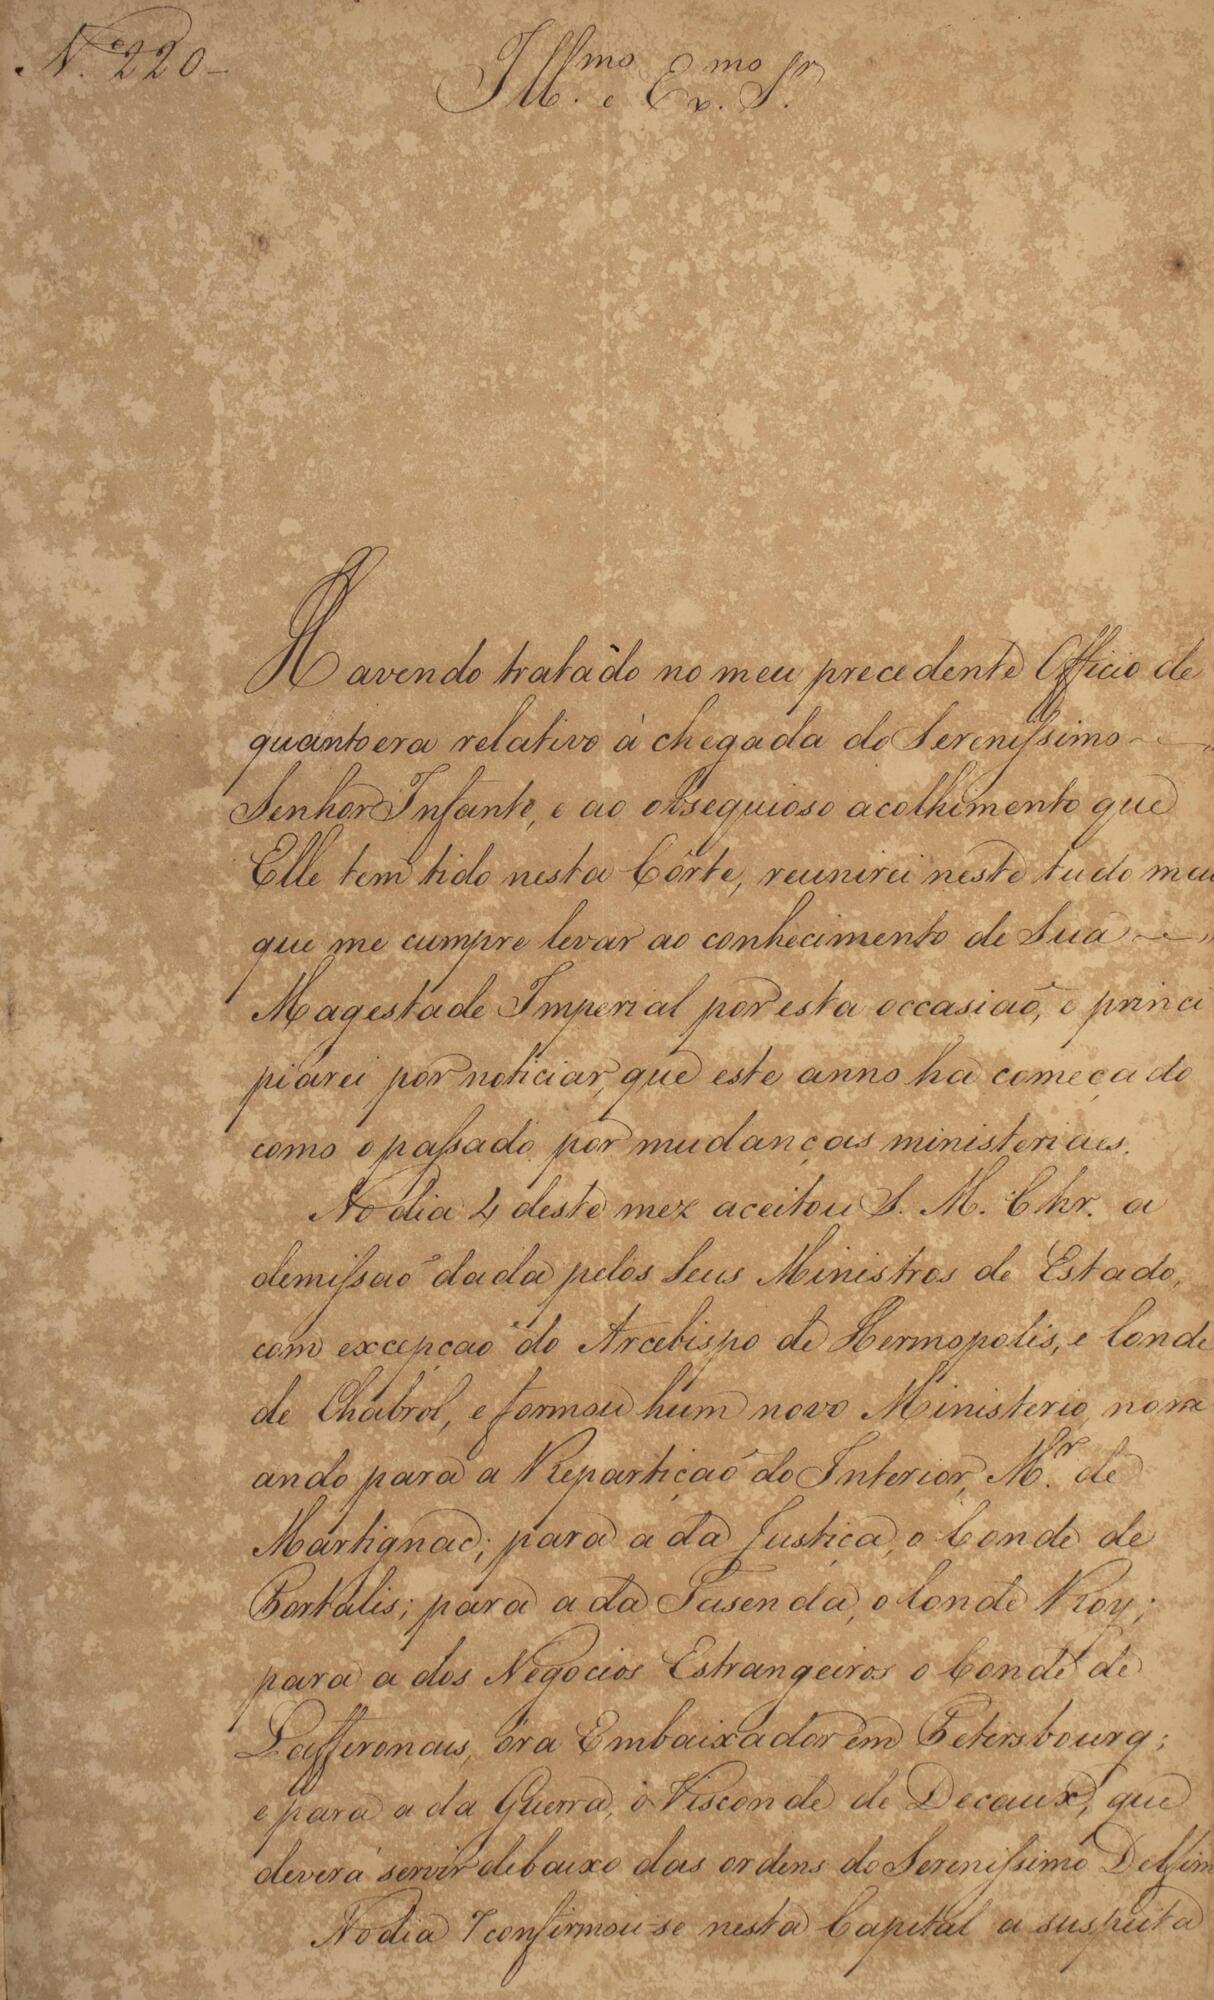 N.º 220-
Ill.mo e Ex.mo Sr.
Havendo tratádo no meu precedente Officio de
quanto era relativo à chegada do Serenissimo
Senhor Infante, e ao obsequioso acolhimento que
Elle tem tido nesta Côrte, reunirei neste tudo mais
que me cumpre levar ao conhecimento de Sua
Magestade Imperial por esta occasiaõ, e princi
piarei por noticiar, que este anno ha começado
como o passado por mudanças ministeriaes.
No dia 4 deste mez aceitou S. M. Chr. a
demissaõ dada pelos Seus Ministros de Estado,
com excepçaõ do Arcebispo de Hermopolis, e Conde
de Chabrol, e formou hum novo Ministerio, nome
ando para a Repartiçaõ do Interior, M.r de
Martignac; para a da Justiça, o Conde de
Portalis; para a da Fasenda, o Conde Roy;
para a dos Negocios Estrangeiros o Conde de
Lafferonais, óra Embaixador em Petersbourg;
e para a da Guerra, o Visconde de Decaux, que
deverá servir debaixo das ordens do Serenissimo Delfim
No dia 7 confirmou-se nesta Capital a suspeita